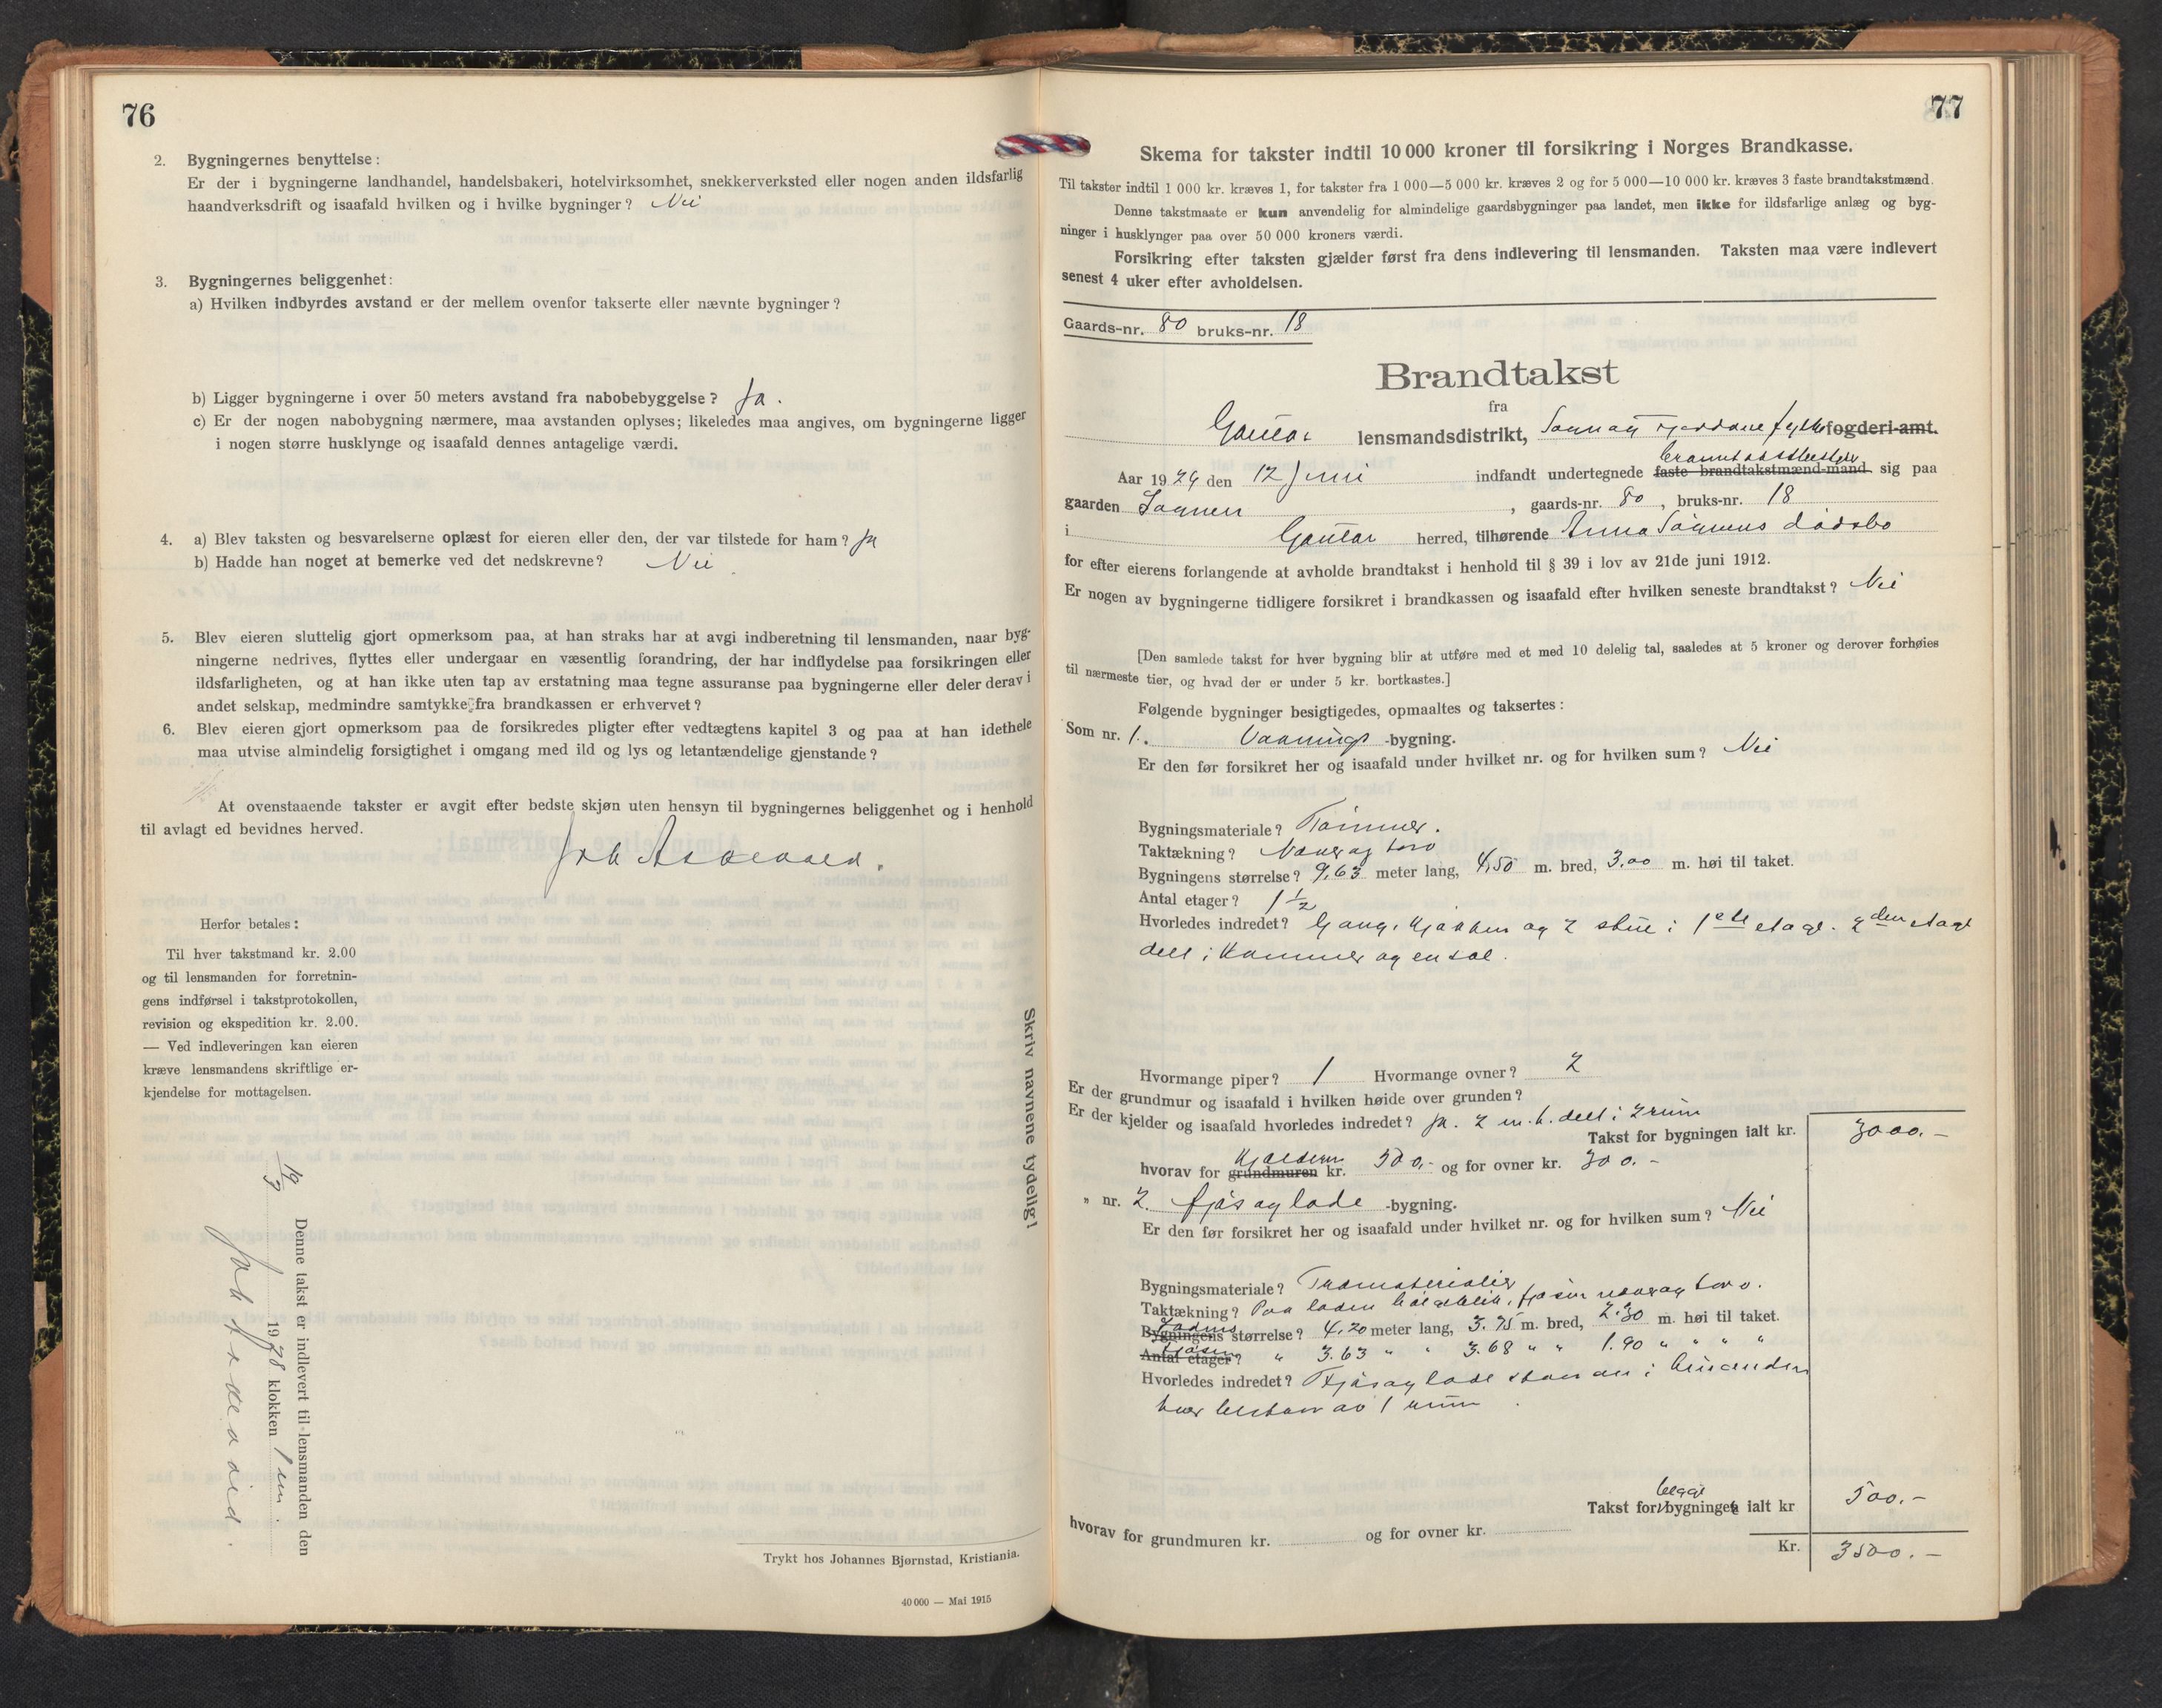 76
2. Bygningernes benyttelse:
Er der i bygningerne landhandel, handelsbakeri, hotelvirksomhet, snekkerverksted eller nogen anden ildsfarlig
haandverksdrift og isaafald hvilken og i hvilke bygninger? Nei
3. Bygningernes beliggenhet:
a) Hvilken indbyrdes avstand er der mellem ovenfor takserte eller nævnte bygninger?
b) Ligger bygningerne i over 50 meters avstand fra nabobebyggelse? Ja.
c) Er der nogen nabobygning nærmere, maa avstanden oplyses; likeledes maa angives, om bygningerne ligger
i nogen større husklynge og isaafald dennes antagelige værdi.
4. a) Blev taksten og besvarelserne oplæst for eieren eller den, der var tilstede for ham? Ja
b) Hadde han noget at bemerke ved det nedskrevne? Nei
5. Blev eieren sluttelig gjort opmerksom paa, at han straks har at avgi indberetning til lensmanden, naar byg-
ningerne nedrives, flyttes eller undergaar en væsentlig forandring, der har indflydelse paa forsikringen eller
ildsfarligheten, og at han ikke uten tap av erstatning maa tegne assuranse paa bygningerne eller deler derav i
andet selskap, medmindre samtykke fra brandkassen er erhvervet?
6. Blev eieren gjort opmerksom paa de forsikredes pligter efter vedtægtens kapitel 3 og paa at han idethele
maa utvise almindelig forsigtighet i omgang med ild og lys og letantændelige gjenstande?
At ovenstaaende takster er avgit efter bedste skjøn uten hensyn til bygningernes beliggenhet og i henhold
til avlagt ed bevidnes herved.
Herfor betales:
Til hver takstmand kr. 2.00
og til lensmanden for forretnin-
gens indførsel i takstprotokollen,
revision og ekspedition kr. 2.00.
— Ved indleveringen kan eieren
kræve lensmandens skriftlige er-
kjendelse for mottagelsen.
Denne takst er indlevert til lensmanden den
19/3 1928 klokken 1 em.
Skriv navnene tydelig!
Trykt hos Johannes Bjørnstad, Kristiania.
40 000 — Mai 1915
77
Skema for takster indtil 10 000 kroner til forsikring i Norges Brandkasse.
Til takster indtil 1 000 kr. kræves 1, for takster fra 1 000—5 000 kr. kræves 2 og for 5 000—10 000 kr. kræves 3 faste brandtakstmænd.
Denne takstmaate er kun anvendelig for almindelige gaardsbygninger paa landet, men ikke for ildsfarlige anlæg og byg-
ninger i husklynger paa over 50 000 kroners værdi.
Forsikring efter taksten gjælder først fra dens indlevering til lensmanden. Taksten maa være indlevert
senest 4 uker efter avholdelsen.
Gaards-nr. 80 bruks-nr. 18
Brandtakst
fra
Gaular lensmandsdistrikt, Sogn og Fjordane fylke fogderi-amt.
Aar 1924 den 12 Juni indfandt undertegnede faste brandtakstmænd-mand sig paa
gaarden , gaards-nr. 80, bruks-nr. 18
i Gaular herred, tilhørende Anna dødsbo
for efter eierens forlangende at avholde brandtakst i henhold til § 39 i lov av 21de juni 1912.
Er nogen av bygningerne tidligere forsikret i brandkassen og isaafald efter hvilken seneste brandtakst? Nei
[Den samlede takst for hver bygning blir at utføre med et med 10 delelig tal, saaledes at 5 kroner og derover forhøies
til nærmeste tier, og hvad der er under 5 kr. bortkastes.]
Følgende bygninger besigtigedes, opmaaltes og taksertes:
Som nr. 1. Vaanings -bygning.
Er den før forsikret her og isaafald under hvilket nr. og for hvilken sum? Nei
Bygningsmateriale? Tømmer.
Taktækning? Næver og torv
Bygningens størrelse? 9,63 meter lang, 4,50 m. bred, 3,00 m. høi til taket.
Antal etager? 1 1/2
Hvorledes indredet? Gang, kjøkken og 2 stue i 1ste etage. 2den etage
delt i kammer og en sal.
Hvormange piper? 1 Hvormange ovner? 2
Er der grundmur og isaafald i hvilken høide over grunden?
Er der kjelder og isaafald hvorledes indredet? Ja. 2 m. h. delt i 2 rum
Takst for bygningen ialt kr. 3000.-
hvorav for grundmuren kjelderen kr. 500.- og for ovner kr. 300.-
" nr. 2 fjøs og lade -bygning.
Er den før forsikret her og isaafald under hvilket nr. og for hvilken sum? Nei
Bygningsmateriale? Træmaterialer
Taktækning? Paa laden bølgeblik, fjøsen næver og torv.
Bygningens Ladens størrelse? 4.20 meter lang, 3.75 m. bred, 2.30 m. høi til taket.
Antal etager? Fjøsen " 3.63 " " 3.68 " " 1.90 " " " "
Hvorledes indredet? Fjøs og lade staar i hinanden
hver bestaar av 1 rum
Takst for begge bygninger ialt kr 500.-
hvorav for grundmuren kr. og for ovner kr.
Kr. 3500.-